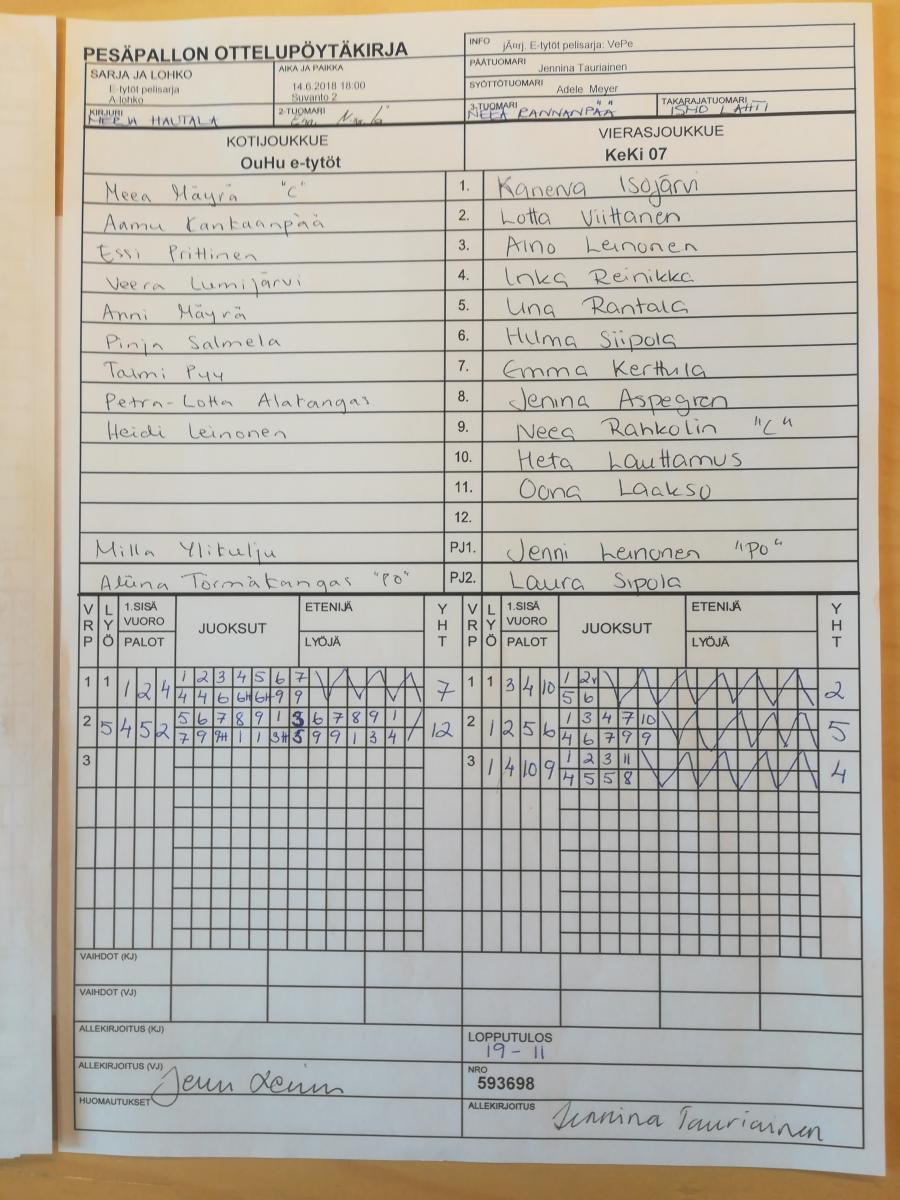 PESÄPALLON OTTELUPÖYTÄKIRJA
INFO jÃ¤rj. E-tytöt pelisarja: VePe
SARJA JA LOHKO
E-tytöt pelisarja
A-lohko
AIKA JA PAIKKA
14.6.2018 18:00
Suvanto 2
PÄÄTUOMARI Jennina Tauriainen
SYÖTTÖTUOMARI Adele Meyer
KIRJURI MERJA HAUTALA
2-TUOMARI
3-TUOMARI NEEA RANNANPÄÄ
TAKARAJATUOMARI ISMO LAHTI
KOTIJOUKKUE
OuHu e-tytöt
VIERASJOUKKUE
KeKi 07
Meea Mäyrä "C" 1. Kanerva Isojärvi
Aamu Kankaanpää 2. Lotta Viittanen
Essi Prittinen 3. Aino Leinonen
Veera Lumijärvi 4. Inka Reinikka
Anni Mäyrä 5. Una Rantala
Pinja Salmela 6. Hilma Siipola
Taimi Pyy 7. Emma Kerttula
Petra-Lotta Alakangas 8. Jenina Aspegren
Heidi Leinonen 9. Neea Rahkolin "C"
10. Heta Lauttamus
11. Oona Laakso
12.
Milla Ylikulju PJ1. Jenni Leinonen "PO"
Aliina Törmäkangas "PO" PJ2. Laura Sipola
VRP LYÖ 1.SISÄ VUORO PALOT JUOKSUT ETENIJÄ LYÖJÄ YHT VRP LYÖ 1.SISÄ VUORO PALOT JUOKSUT ETENIJÄ LYÖJÄ YHT
1 1 1 2 4 1 2 3 4 5 6 7 7 1 1 3 4 10 1 2v 2
4 4 6 6H 6H 9 9 5 6
2 5 4 5 2 5 6 7 8 9 1 3 6 7 8 9 1 12 2 1 2 5 6 1 3 4 7 10 5
7 9 9H 1 1 3H 5 9 9 1 3 4 4 6 7 9 9
3 3 1 4 10 9 1 2 3 11 4
4 5 5 8
VAIHDOT (KJ)
VAIHDOT (VJ)
ALLEKIRJOITUS (KJ)
LOPPUTULOS
19 - 11
ALLEKIRJOITUS (VJ)
NRO
593698
HUOMAUTUKSET
ALLEKIRJOITUS Jennina Tauriainen